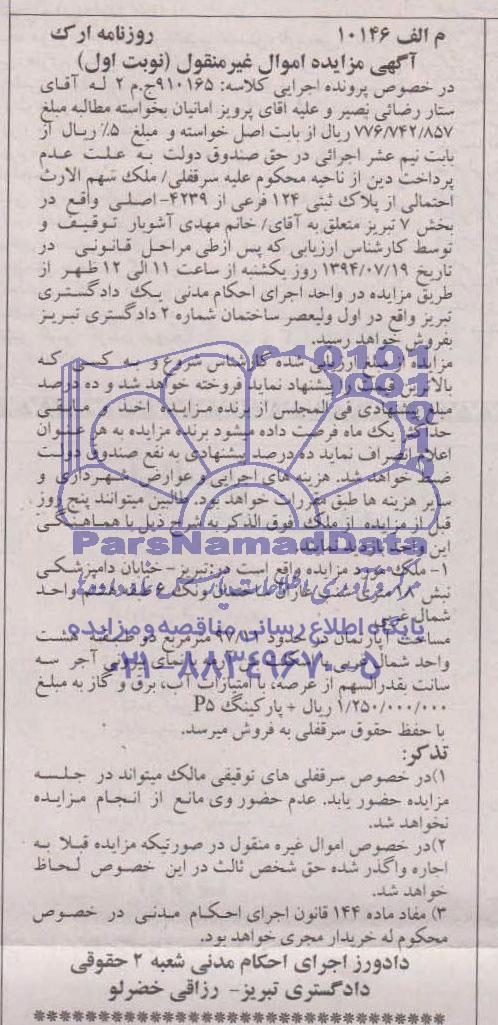 م الف ۱۰۱۴۶ روزنامه ارک
آگهی مزایده اموال غیرمنقول (نوبت اول)
در خصوص پرونده اجرایی کلاسه: ۹۱۰۱۶۵ج.م ۲ له آقای
ستار رضائی نصیر و علیه آقای پرویز امانیان بخواسته مطالبه مبلغ
۷۷۶/۷۴۲/۸۵۷ ریال از بابت اصل خواسته و مبلغ ۵٪ ریال از
بابت نیم عشر اجرائی در حق صندوق دولت به علت عدم
پرداخت دین از ناحیه محکوم علیه سرقفلی/ ملک سهم الارث
احتمالی از پلاک ثبتی ۱۲۴ فرعی از ۴۲۳۹- اصلی واقع در
بخش ۷ تبریز متعلق به آقای/ خانم مهدی آشوبار توقیف و
توسط کارشناس ارزیابی که پس ازطی مراحل قانونی در
تاریخ ۱۳۹۴/۰۷/۱۹ روز یکشنبه از ساعت ۱۱ الی ۱۲ ظهر از
طریق مزایده در واحد اجرای احکام مدنی یک دادگستری
تبریز واقع در اول ولیعصر ساختمان شماره ۲ دادگستری تبریز
بفروش خواهد رسید.
مزایده از مبلغ ارزیابی شده کارشناس شروع و به کسی که
بالاترین قیمت را پیشنهاد نماید فروخته خواهد شد و ده درصد
مبلغ پیشنهادی فی المجلس از برنده مزایده اخذ و مابقی
حداکثر یک ماه فرصت داده میشود برنده مزایده به هر عنوان
اعلام انصراف نماید ده درصد پیشنهادی به نفع صندوق دولت
ضبط خواهد شد. هزینه های اجرایی و عوارض شهرداری و
سایر هزینه ها طبق مقررات خواهد بود. طالبین میتوانند پنج روز
قبل از مزایده از ملک فوق الذکر به شرح ذیل با هماهنگی
این واحد بازدید نمایند.
ParsNamadData
۱- ملک مورد مزایده واقع است در: تبریز - خیابان دامپزشکی
نبش ۱۸ متری طبقه هشتم واحد
شمال غربی
پایگاه اطلاع رسانی مناقصه و مزایده
مساحت آپارتمان در حدود ۹۷/۱۲ مترمربع در طبقه هشت
واحد شمال غربی نمای آجر سه
۰۲۱-۸۸۳۴۹۶۷۰-۵
سانت بقدرالسهم از عرصه، با امتیازات آب، برق و گاز به مبلغ
۱/۲۵۰/۰۰۰/۰۰۰ ریال + پارکینگ P۵
با حفظ حقوق سرقفلی به فروش میرسد.
تذکر:
۱)در خصوص سرقفلی های توقیفی مالک میتواند در جلسه
مزایده حضور یابد. عدم حضور وی مانع از انجام مزایده
نخواهد شد.
۲)در خصوص اموال غیره منقول در صورتیکه مزایده قبلا به
اجاره واگذر شده حق شخص ثالث در این خصوص لحاظ
خواهد شد.
۳) مفاد ماده ۱۴۴ قانون اجرای احکام مدنی در خصوص
محکوم له خریدار مجری خواهد بود.
دادورز اجرای احکام مدنی شعبه ۲ حقوقی
دادگستری تبریز- رزاقی خضرلو